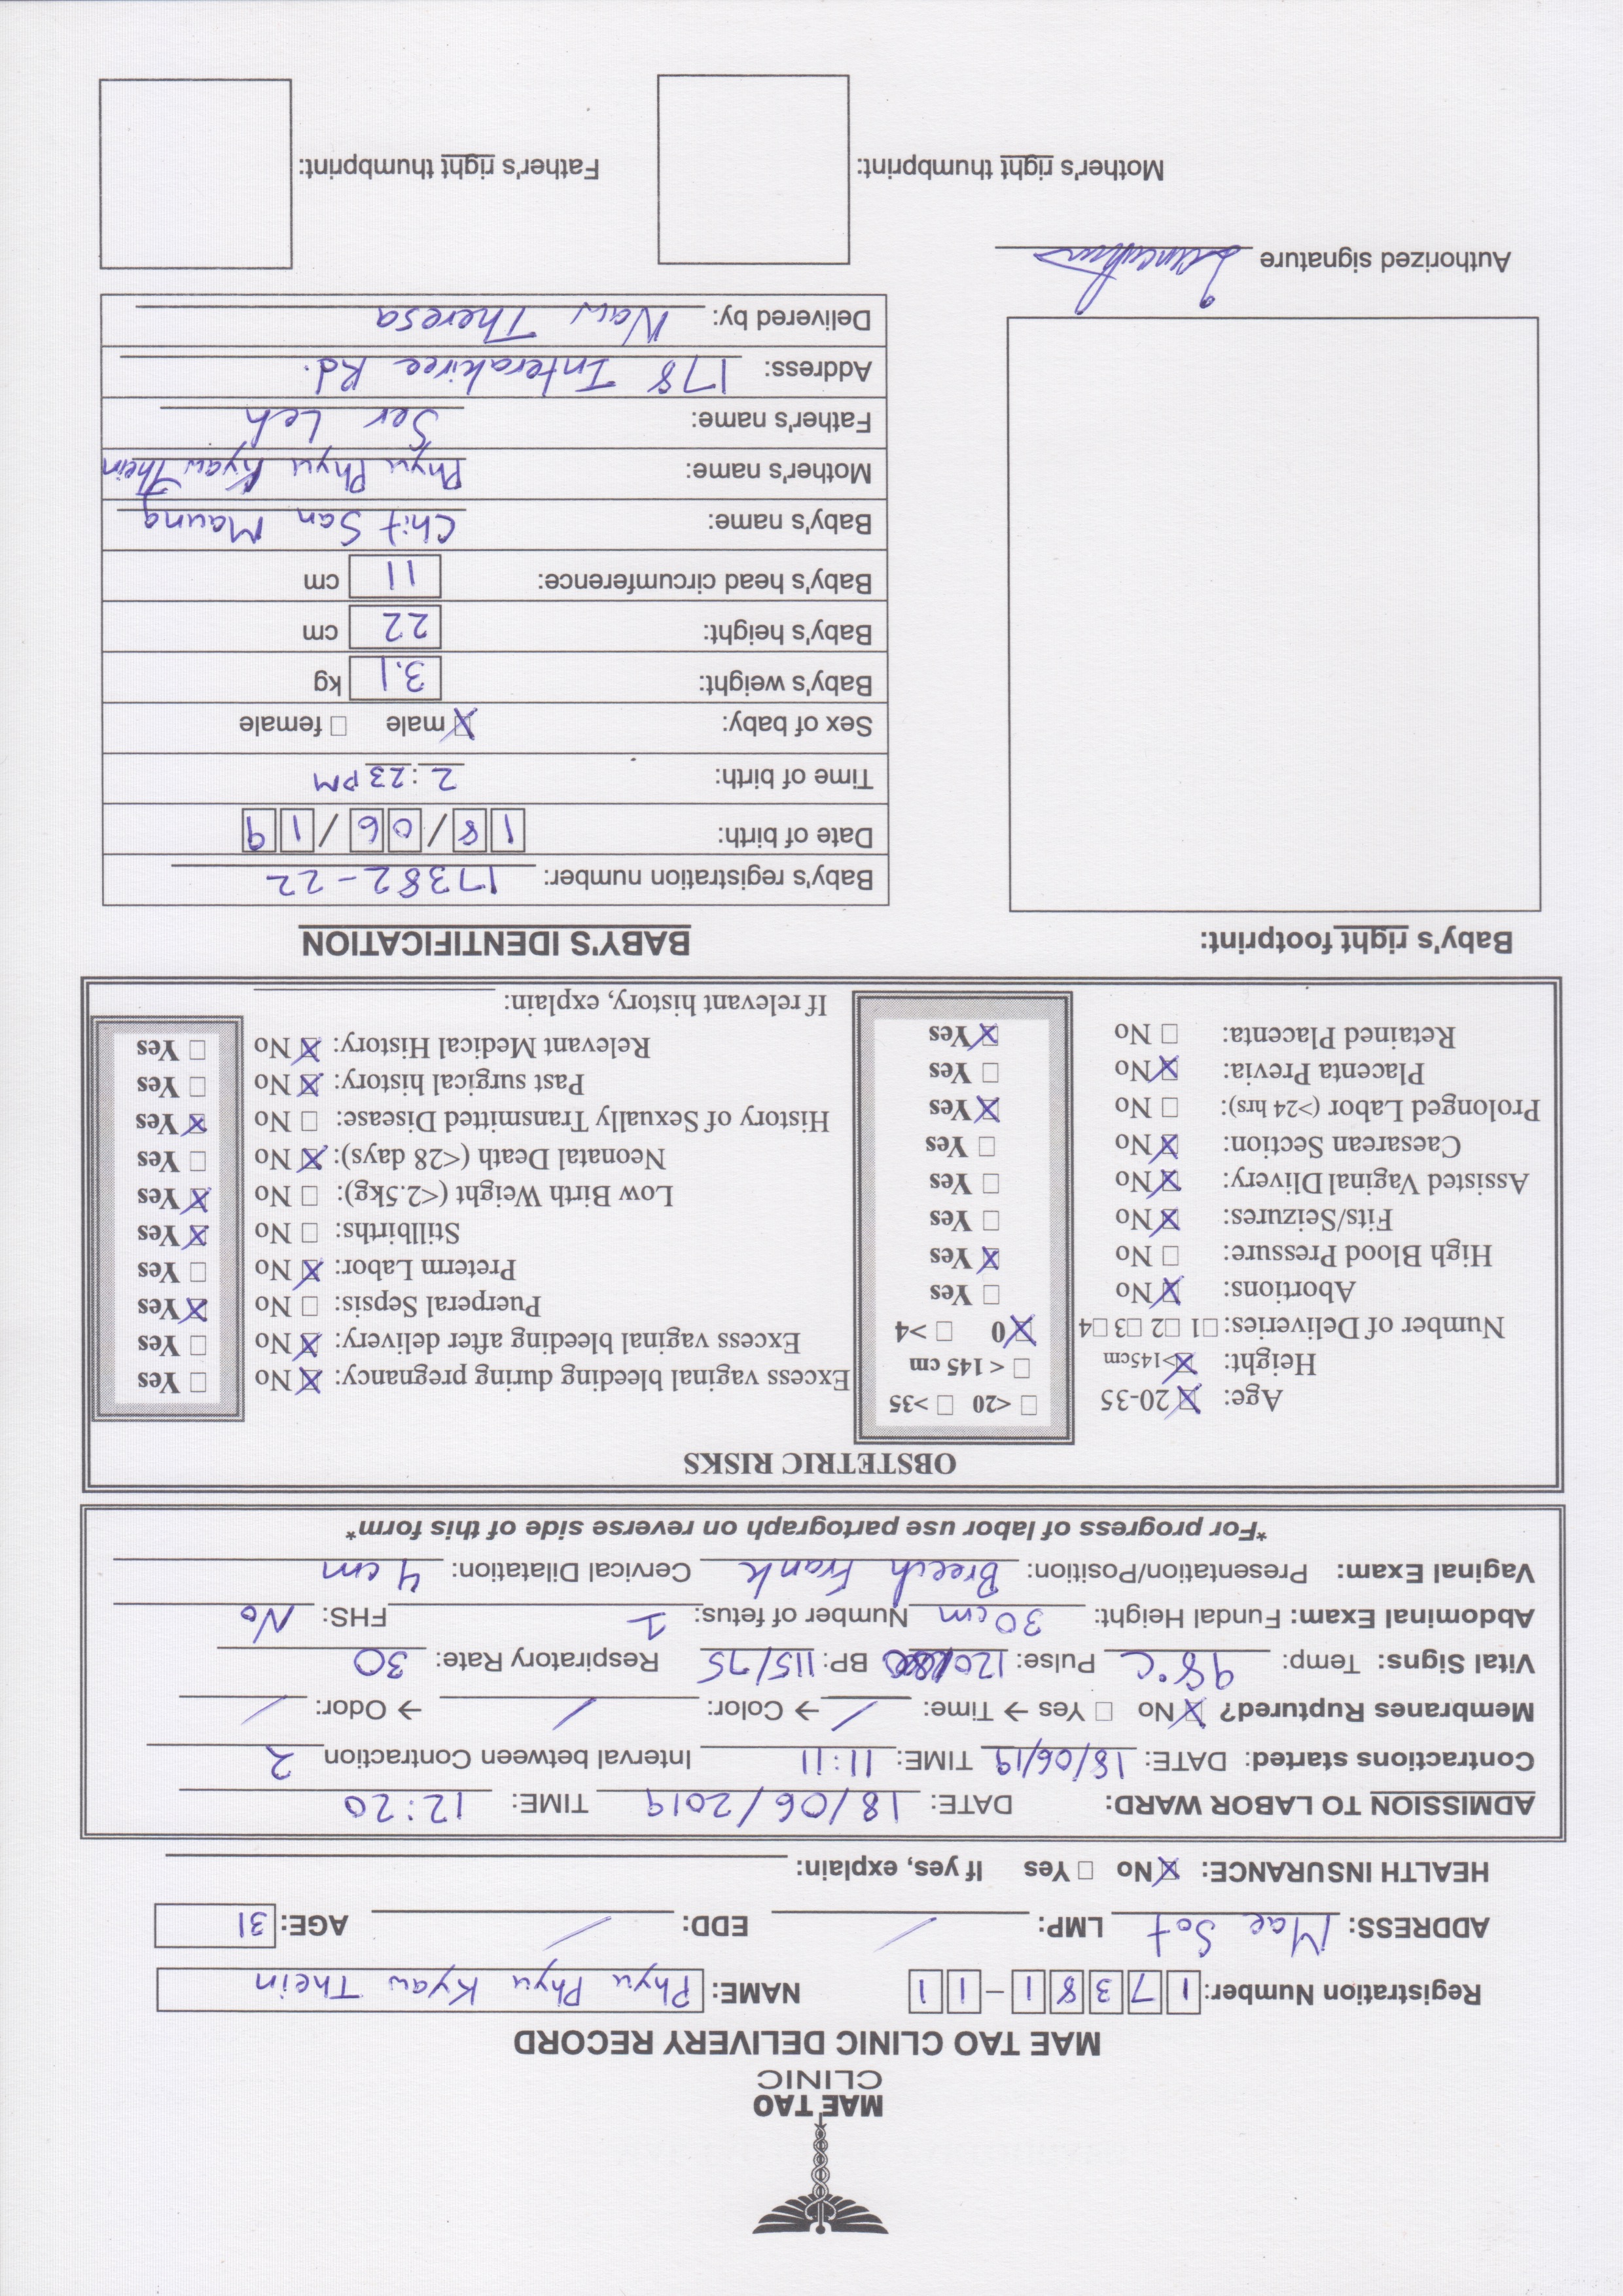 MAE TAO
CLINIC
MAE TAO CLINIC DELIVERY RECORD
Registration Number: 17381-11 NAME: Phyu Phyu Kyaw Thein
ADDRESS: Mae Sot LMP: / EDD: / AGE: 31
HEALTH INSURANCE: ☒ No ☐ Yes If yes, explain:
ADMISSION TO LABOR WARD: DATE: 18/06/2019 TIME: 12:20
Contractions started: DATE: 18/06/19 TIME: 11:11 Interval between Contraction 2
Membranes Ruptured? ☒ No ☐ Yes → Time: / → Color: / → Odor: /
Vital Signs: Temp: 98°C Pulse: 120 BP: 115/75 Respiratory Rate: 30
Abdominal Exam: Fundal Height: 30cm Number of fetus: 1 FHS: No
Vaginal Exam: Presentation/Position: Breech Frank Cervical Dilatation: 4 cm
*For progress of labor use partograph on reverse side of this form*
OBSTETRIC RISKS
Age: ☒ 20-35 ☐ <20 ☐ >35
Height: ☒ >145cm ☐ <145 cm
Number of Deliveries: ☐1 ☐2 ☐3 ☐4 ☒ 0 ☐ >4
Abortions: ☒ No ☐ Yes
High Blood Pressure: ☐ No ☒ Yes
Fits/Seizures: ☒ No ☐ Yes
Assisted Vaginal Dlivery: ☒ No ☐ Yes
Caesarean Section: ☒ No ☐ Yes
Prolonged Labor (>24 hrs): ☐ No ☒ Yes
Placenta Previa: ☒ No ☐ Yes
Retained Placenta: ☐ No ☒ Yes
Excess vaginal bleeding during pregnancy: ☒ No ☐ Yes
Excess vaginal bleeding after delivery: ☒ No ☐ Yes
Puerperal Sepsis: ☐ No ☒ Yes
Preterm Labor: ☒ No ☐ Yes
Stillbirths: ☐ No ☒ Yes
Low Birth Weight (<2.5kg): ☐ No ☒ Yes
Neonatal Death (<28 days): ☒ No ☐ Yes
History of Sexually Transmitted Disease: ☐ No ☒ Yes
Past surgical history: ☒ No ☐ Yes
Relevant Medical History: ☒ No ☐ Yes
If relevant history, explain:
Baby's right footprint:
Authorized signature
BABY'S IDENTIFICATION
Baby's registration number: 17382-22
Date of birth: 18/06/19
Time of birth: 2:23 PM
Sex of baby: ☒ male ☐ female
Baby's weight: 3.1 kg
Baby's height: 22 cm
Baby's head circumference: 11 cm
Baby's name: Chit San Maung
Mother's name: Phyu Phyu Kyaw Thein
Father's name: Ser Leh
Address: 178 Interakiree Rd.
Delivered by: Naw Theresa
Mother's right thumbprint:
Father's right thumbprint: